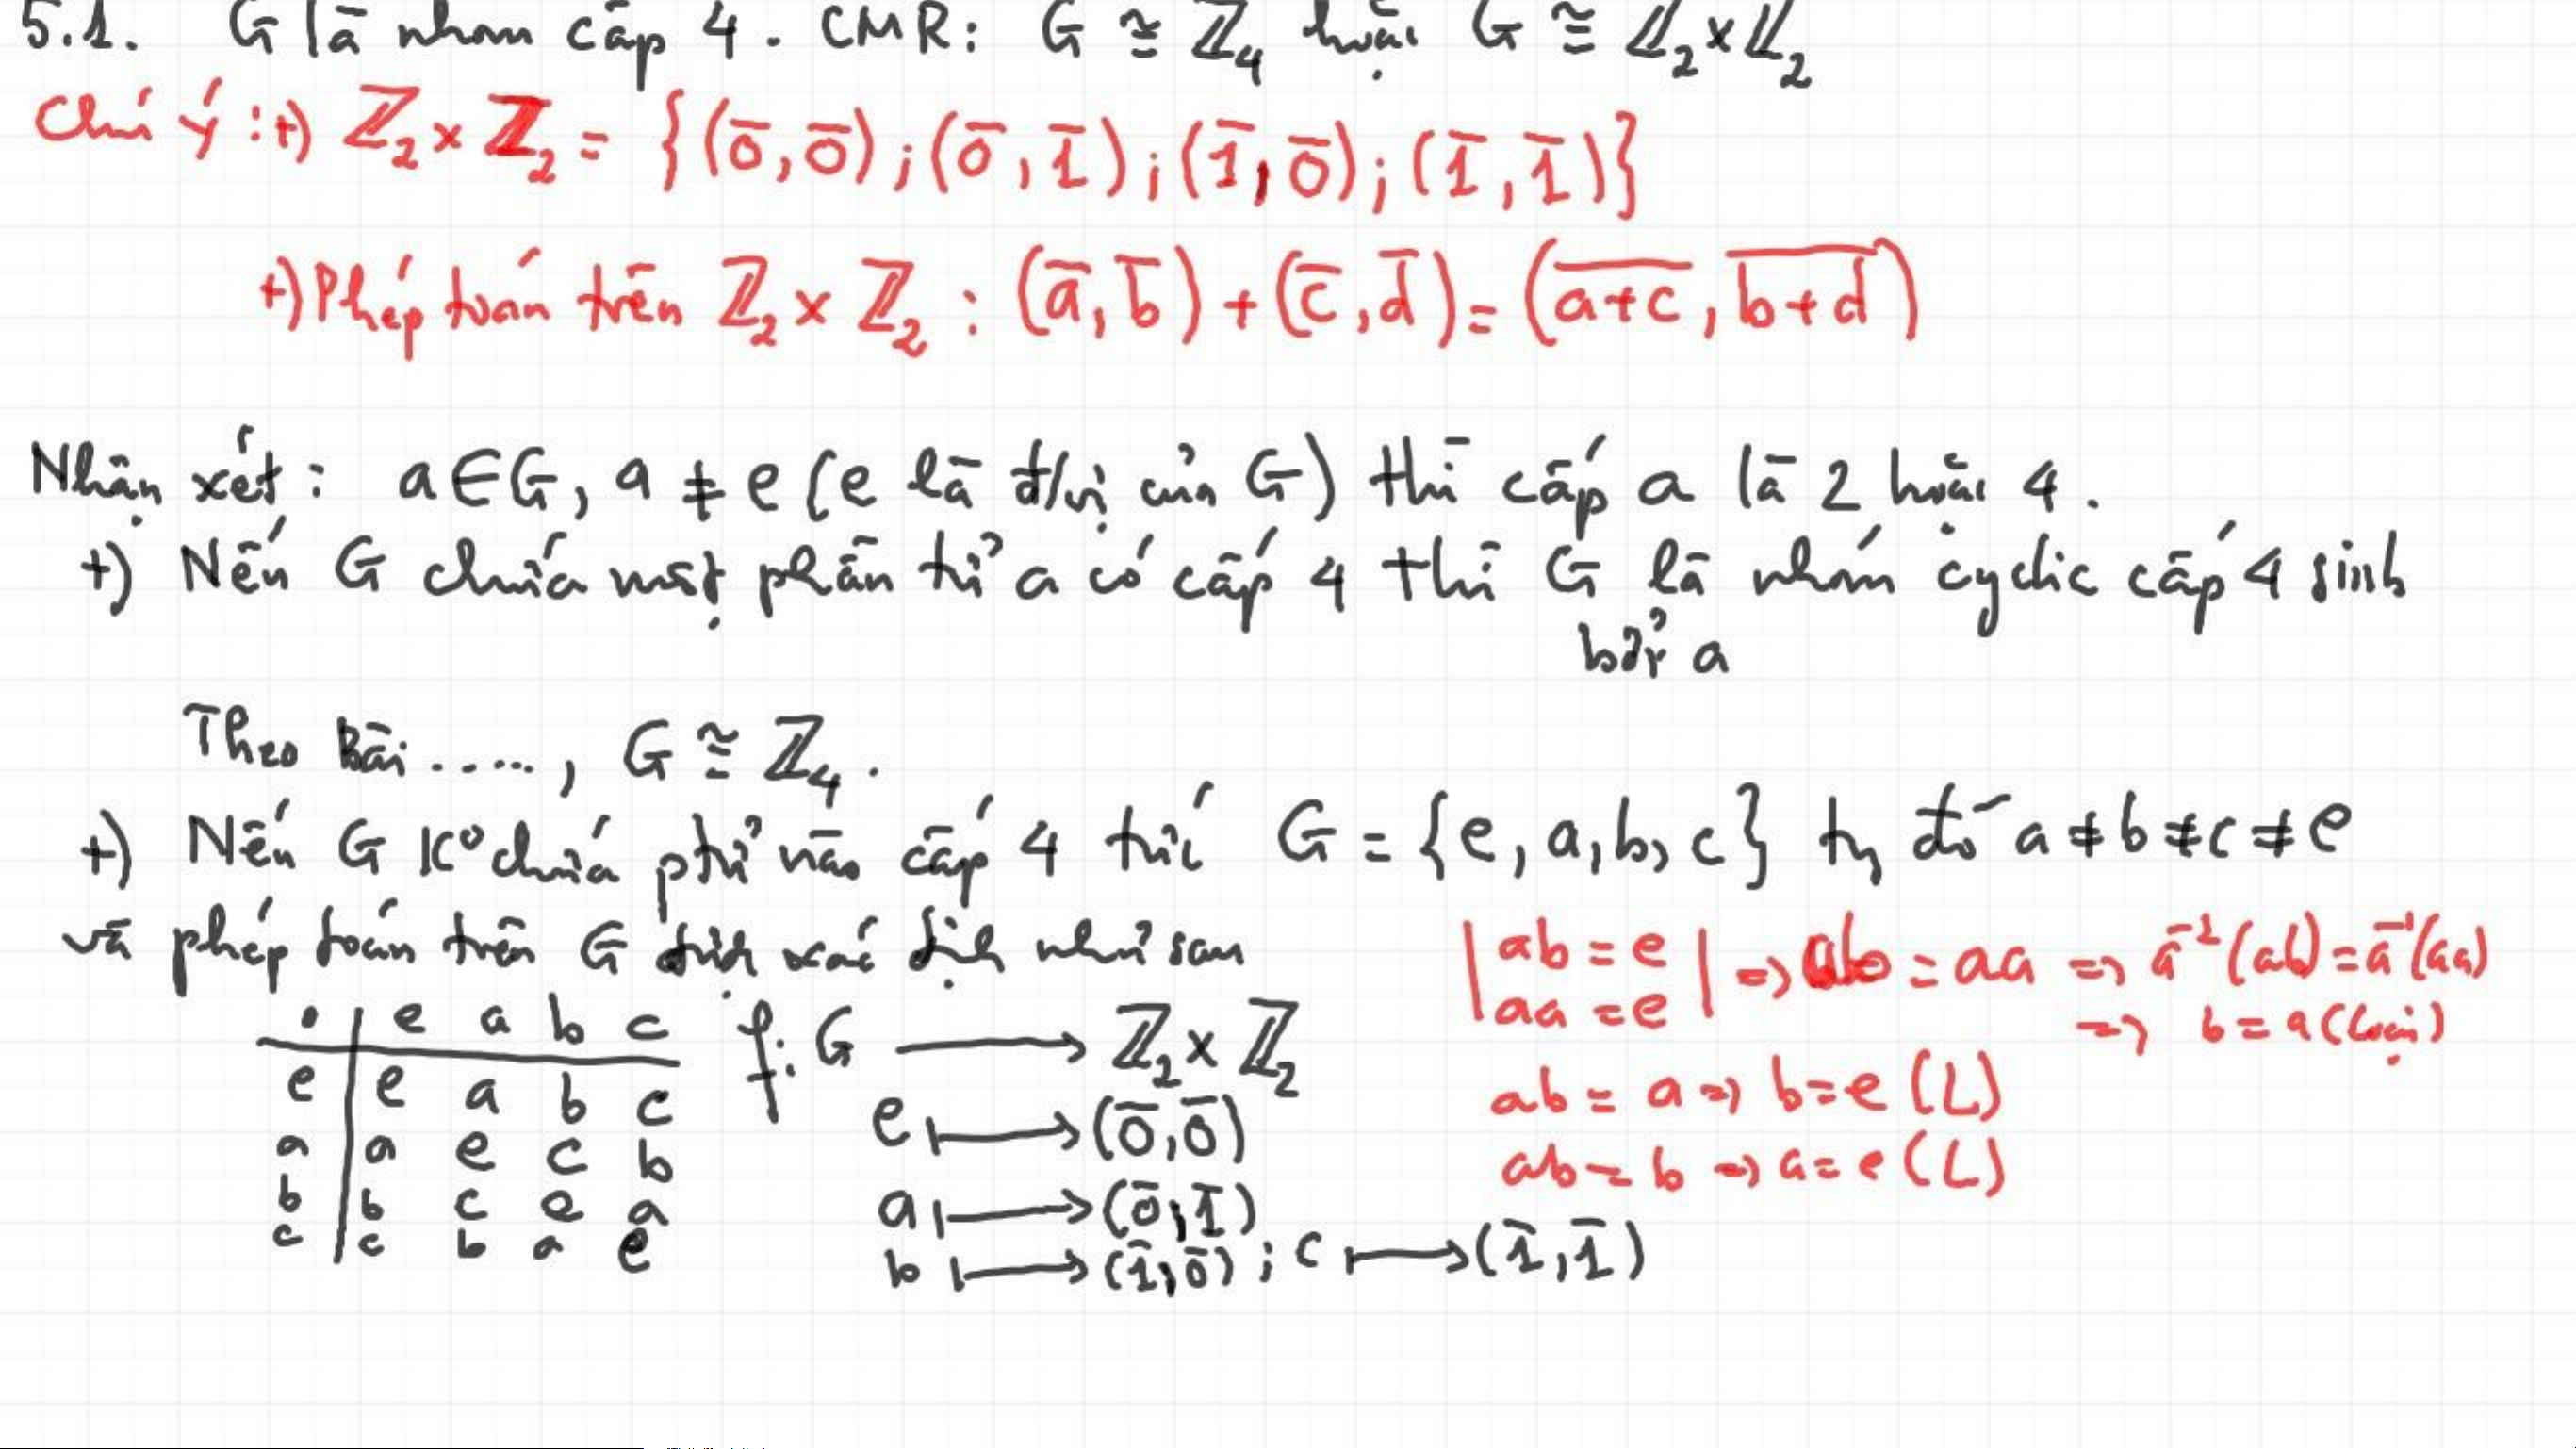 5.1. G là nhóm cấp 4. CMR: G ≅ ℤ₄ hoặc G ≅ ℤ₂×ℤ₂
Chú ý: +) ℤ₂ × ℤ₂ = {(0̅,0̅);(0̅,1̅);(1̅,0̅);(1̅,1̅)}
+) Phép toán trên ℤ₂ × ℤ₂ : (a̅,b̅) + (c̅,d̅) = (a̅+̅c̅, b̅+̅d̅)
Nhận xét: a∈G, a ≠ e (e là đ/vị của G) thì cấp a là 2 hoặc 4.
+) Nếu G chứa một phần tử a có cấp 4 thì G là nhóm cyclic cấp 4 sinh
bởi a
Theo Bài ....., G ≅ ℤ₄.
+) Nếu G K⁰ chứa ptử nào cấp 4 thì G = {e, a, b, c} tg đó a ≠ b ≠ c ≠ e
và phép toán trên G được xác định như sau
| ab = e
aa = e | => ab = aa => a⁻¹(ab) = a⁻¹(aa)
=> b = a (loại)
ab = a => b = e (L)
ab = b => a = e (L)
. | e a b c
e | e a b c
a | a e c b
b | b c e a
c | c b a e
f: G ⟶ ℤ₂ × ℤ₂
e ⟼ (0̅,0̅)
a ⟼ (0̅,1̅)
b ⟼ (1̅,0̅) ; c ⟼ (1̅,1̅)